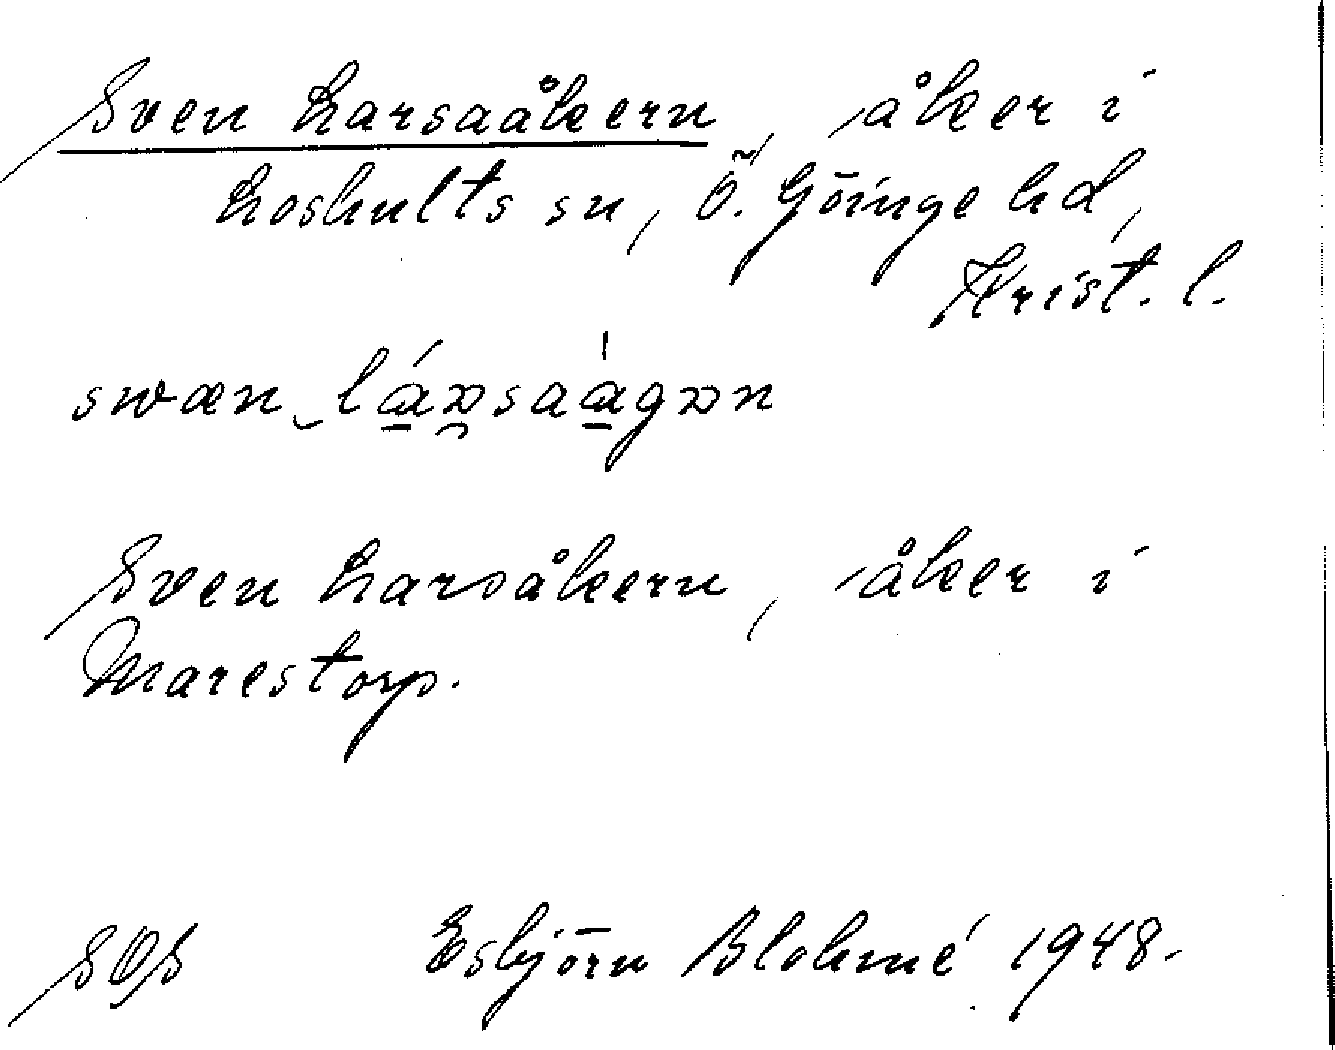 Sven Larsaåkern, åker i
Loshults sn, Ö. Göinge hd,
Krist. l.
Sven Larsåkern, åker i
Marestorp.
SOS Esbjörn Blohmé 1948.